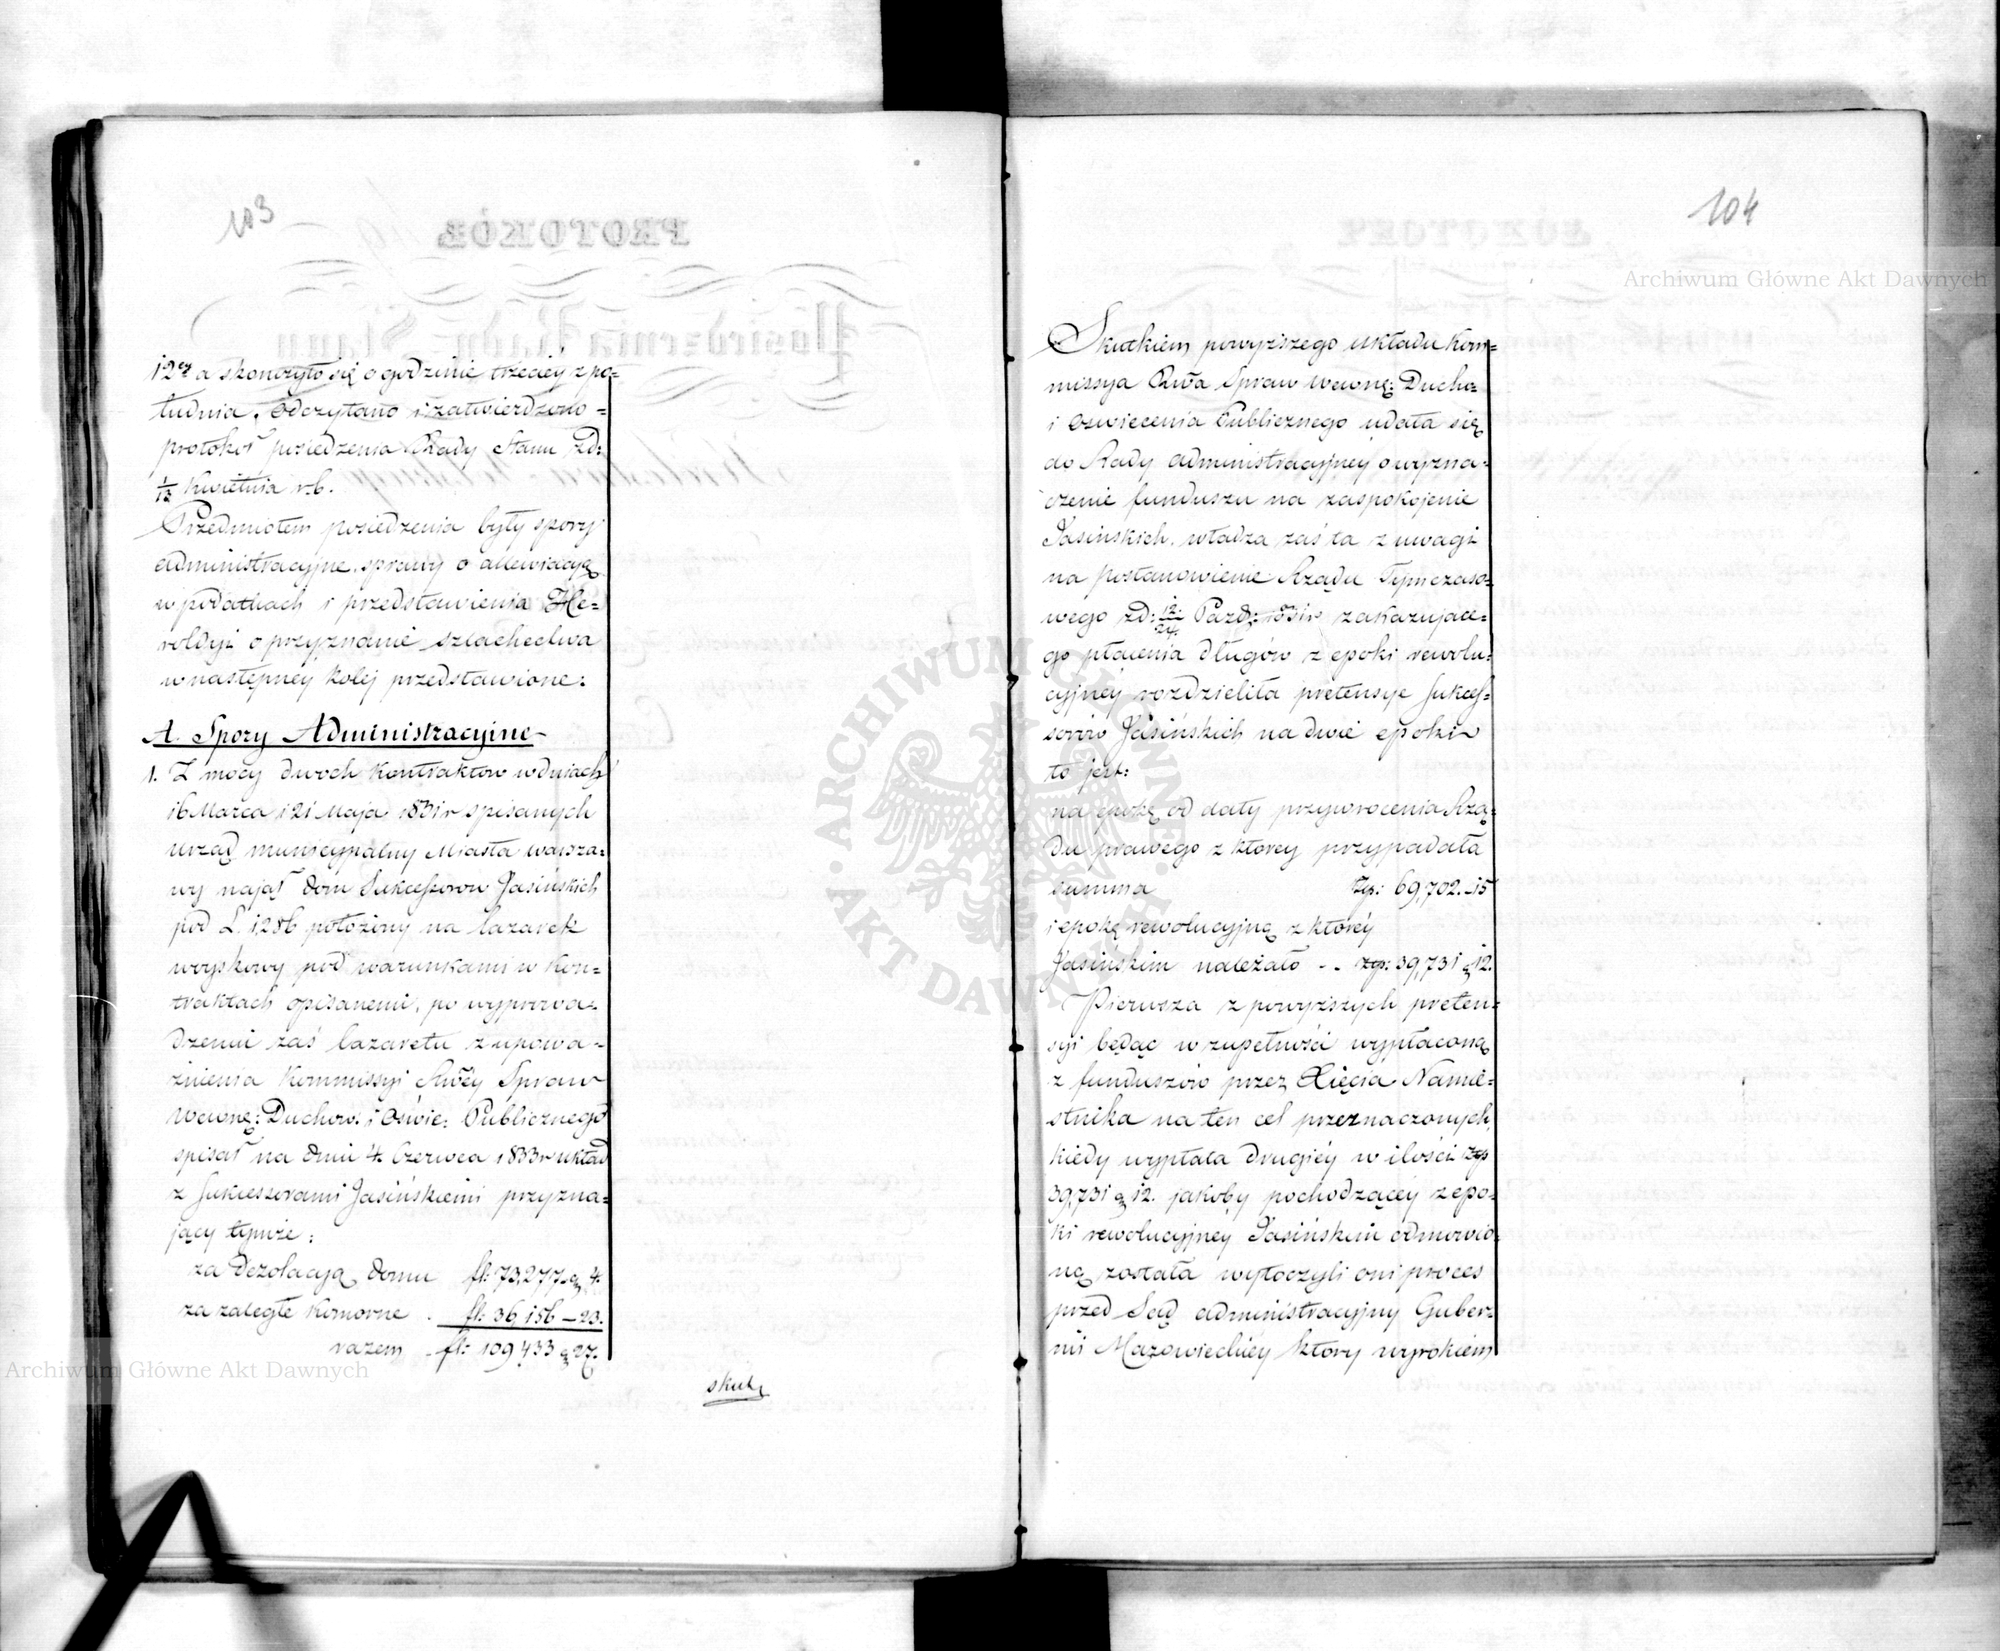 103
12ey a skończyło się o godzinie trzeciéy z po=
łudnia. Odczytano i zatwierdzono =
protokoł posiedzenia Rady Stanu z d:
1/13 Kwietnia r. b.
Przedmiotem posiedzenia były spory
administracyjne, sprawy o allewiacyą
w podatkach i przedstawienia He=
roldyi o przyznanie szlachectwa
w następney kolej przedstawione:
A. Spory Administracyjne
1. Z mocy dwóch Kontraktow w dniach
16 Marca i 21 Maja 1831 r spisanych
urząd municypalny Miasta Warsza=
wy najął dom Sukcessorow Jasińskich
pod L. 1286 położony na lazaret
woyskowy pod warunkami w Kon=
traktach opisanemi, po wyprowa=
dzeniu zaś lazaretu z upowa=
żnienia Kommissyi Rwéy Spraw
Wewnę: Duchow. i Oświe: Publicznego
spisał na dniu 4. Czerwca 1833 r układ
z Sukcessorami Jasińskiemi przyzna=
jący tymże:
za Dezolacyą domu fl: 73,277 g 4.
za zaległe Komorne . fl: 36,156 – 23.
razem . fl: 109,433 g 27.
skut
104
Skutkiem powyższego układu Kom=
missya Rwa Spraw Wewnę: Ducho=
i Oświecenia Publicznego udała się
do Rady Administracyjney o wyzna=
czenie funduszu na zaspokojenie
Jasińskich. władza zaś ta z uwagi
na postanowienie Rządu Tymczaso=
wego z d: 12/24 Paźd: 1831 r zakazujące=
go płacenia długów z epoki rewolu=
cyjnéy rozdzieliła pretensye Sukces=
sorów Jasińskich na dwie epoki
to jest:
na epokę od daty przywrocenia Rzą=
du prawego z ktorey przypadała
summa Złp: 69,702.–15
i epokę rewolucyjną z któréy
Jasińskim należało – – złp: 39,731 g 12.
Pierwsza z powyższych preten=
syi będąc w zupełności wypłaconą
z funduszów przez Xięcia Namie=
stnika na ten cel przeznaczonych,
kiedy wypłata drugiéy w ilości złp
39,731 g 12. jakoby pochodzącéy z epo=
ki rewolucyjney Jasińskim odmowio=
ną została wytoczyli oni proces
przed Sąd administracyjny Guber=
nii Mazowieckiéy który wyrokiem
Archiwum Główne Akt Dawnych
Archiwum Główne Akt Dawnych
ARCHIWUM GŁÓWNE AKT DAWNYCH